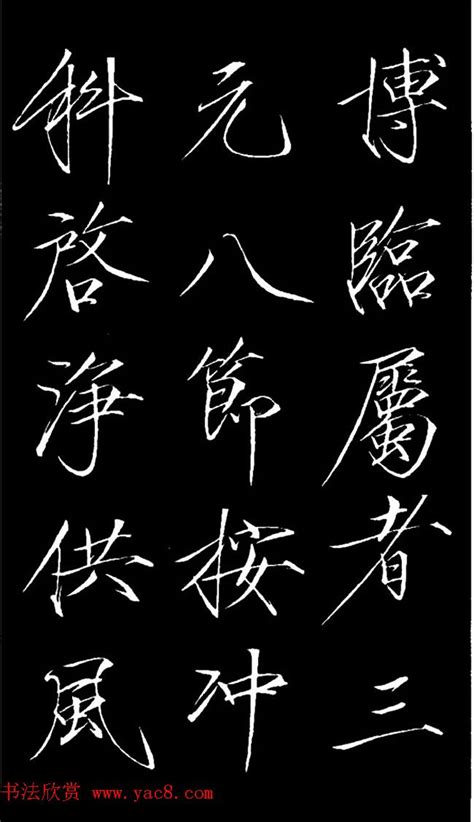 博臨屬者三
元八節按冲
科啓净供風
书法欣赏 www.yac8.com